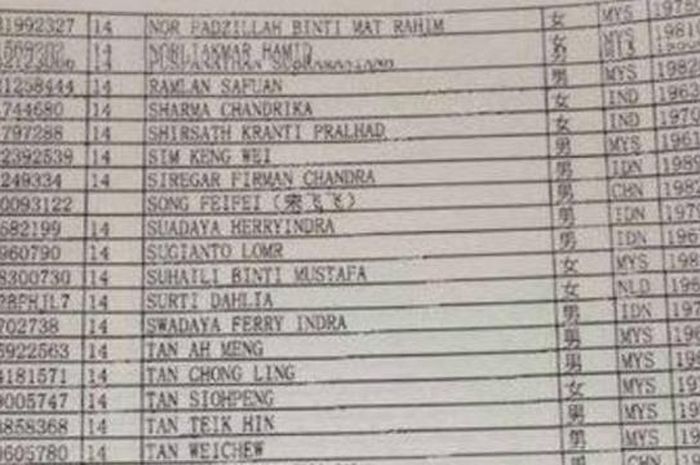 31992327 14 NOR PADZILLAH BINTI MAT RAHIM 女 MYS 1978
14 NORLIAKMAR HAMID 女 MYS 1981
男
1258444 14 RAMLAN SAFUAN 男 MYS 1982
744680 14 SHARMA CHANDRIKA 女 IND 196
797288 14 SHIRSATH KRANTI PRALHAD 女 IND 197
2392539 14 SIM KENG WEI 男 MYS 196
249334 14 SIREGAR FIRMAN CHANDRA 男 IDN 198
0093122 SONG FEIFEI (宋飞飞) 男 CHN 198
682199 14 SUADAYA HERRYINDRA 男 IDN 197
960790 14 SUGIANTO LOMR 男 IDN 196
8300730 14 SUHAILI BINTI MUSTAFA 女 MYS 198
28PHJL7 14 SURTI DAHLIA 女 NLD 19
702738 14 SWADAYA FERRY INDRA 男 IDN 19
5922563 14 TAN AH MENG 男 MYS 19
4181571 14 TAN CHONG LING 男 MYS 19
9005747 14 TAN SIOHPENG 女 MYS 19
3858368 14 TAN TEIK HIN 男 MYS 19
605780 14 TAN WEICHEW 男 MYS 19
CHN